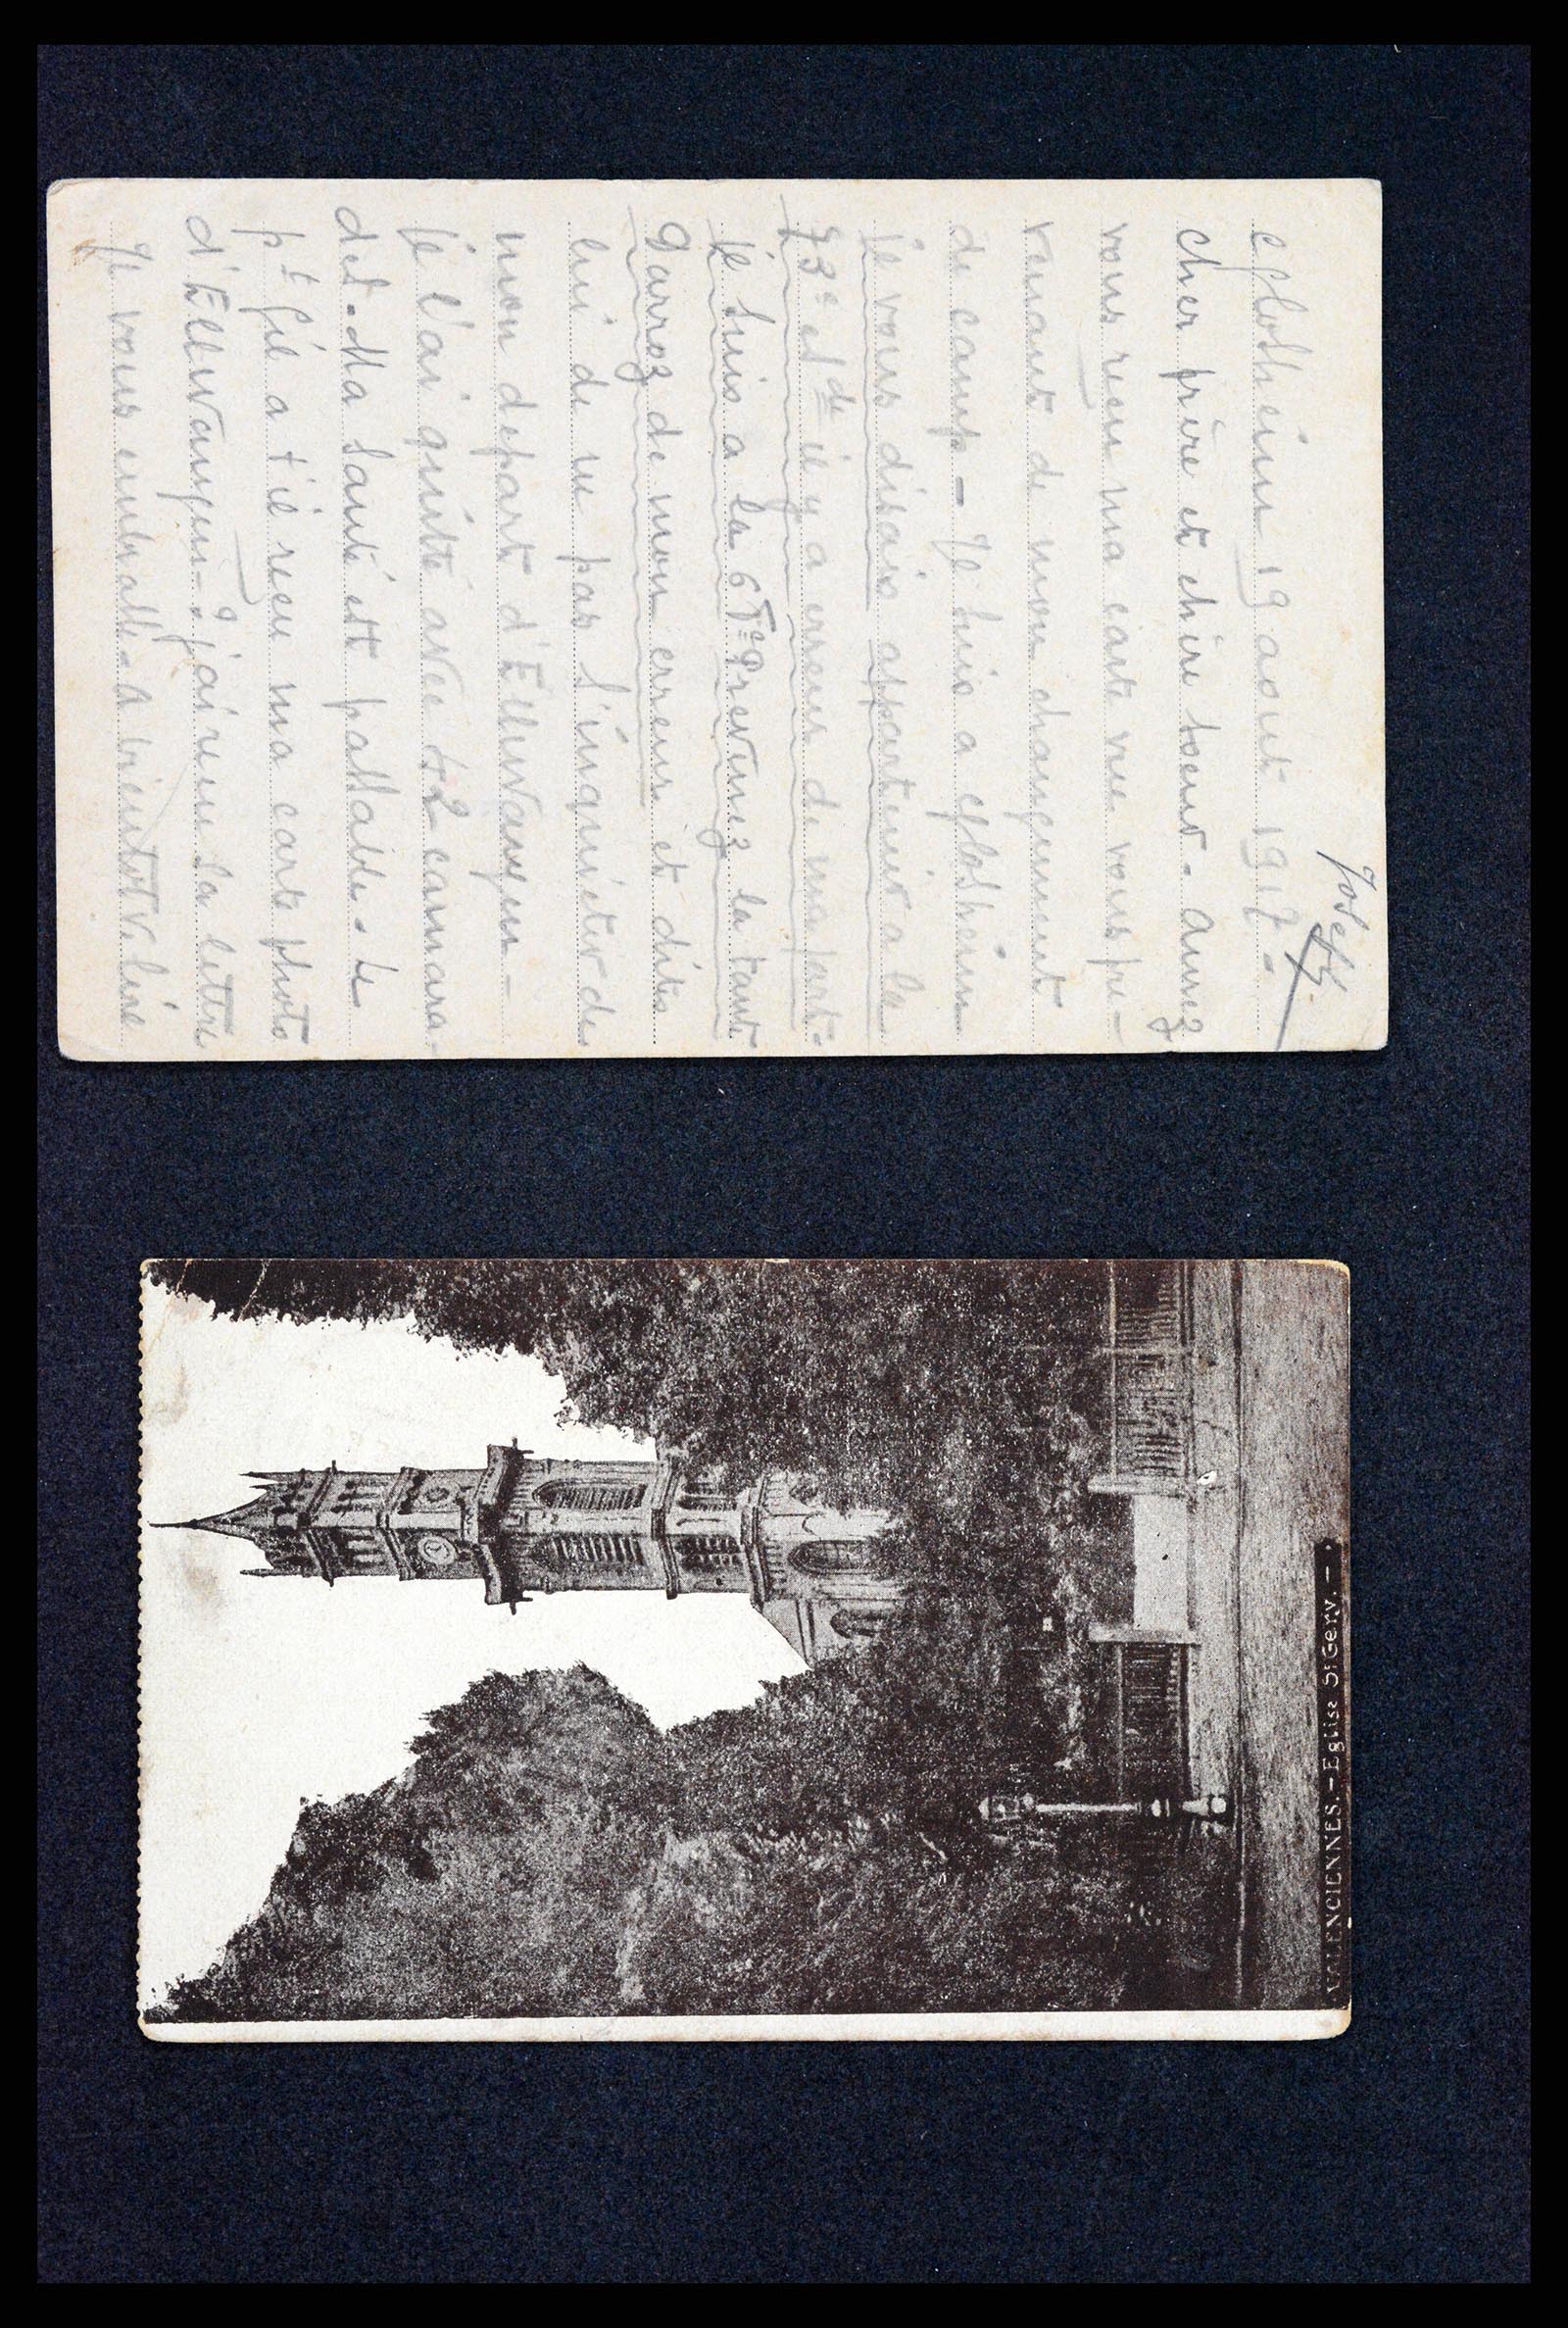 Eglosheim 19 aout 1917-
cher frère et chère soeur - Aurez
vous reçu ma carte vue vous pre-
venant de mon changement
de camp - Je suis a Eglosheim
Je vous disais appartenir a la
73e et de il y a erreur de ma part-
Je suis a la 6 Prevenez la tante
Darroz de mon erreur et dites
lui de ne pas s'inquieter de
mon depart d'Ellwangen-
Je l'ai quitté avec 42 camara-
des - Ma santé est passable - Le
pt Gil a t'il reçu ma carte photo
d'Ellwangen - ? j'ai reçu sa lettre
Je vous embrasse - A bientot
Joseph
VALENCIENNES. - Eglise St Gery. -